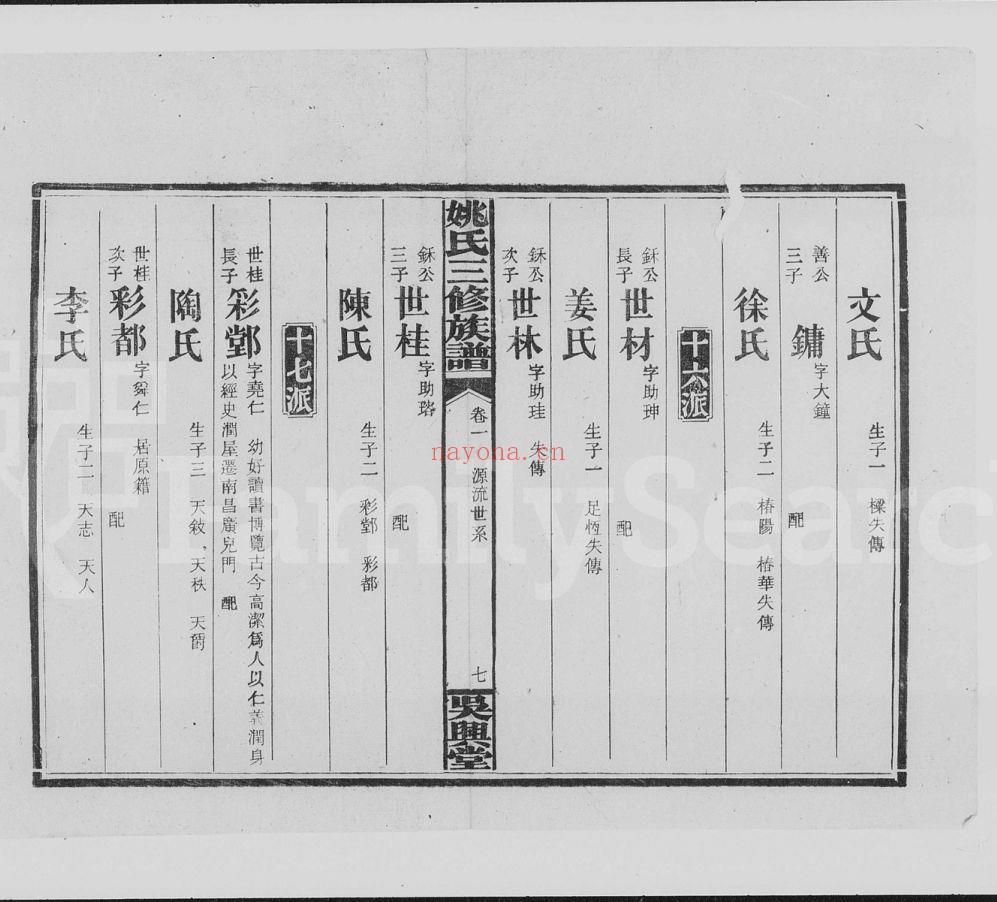 文氏 生子一 樑失傳
善公三子 鏞 字大鐘 配
徐氏 生子二 椿陽 椿華失傳
十六派
鉌公長子 世材 字助珅 配
姜氏 生子一 足恆失傳
鉌公次子 世林 字助珪 失傳
姚氏三修族譜 卷一 源流世系 七 吳興堂
鉌公三子 世桂 字助瑢 配
陳氏 生子二 彩鄧 彩都
十七派
世桂長子 彩鄧 字堯仁 幼好讀書博覽古今高潔爲人以仁義潤身
以經史潤屋遷南昌廣兒門 配
陶氏 生子三 天敍 天秩 天爵
世桂次子 彩都 字舜仁 居原籍 配
李氏 生子二 天志 天人
nayona.cn
FamilySearch